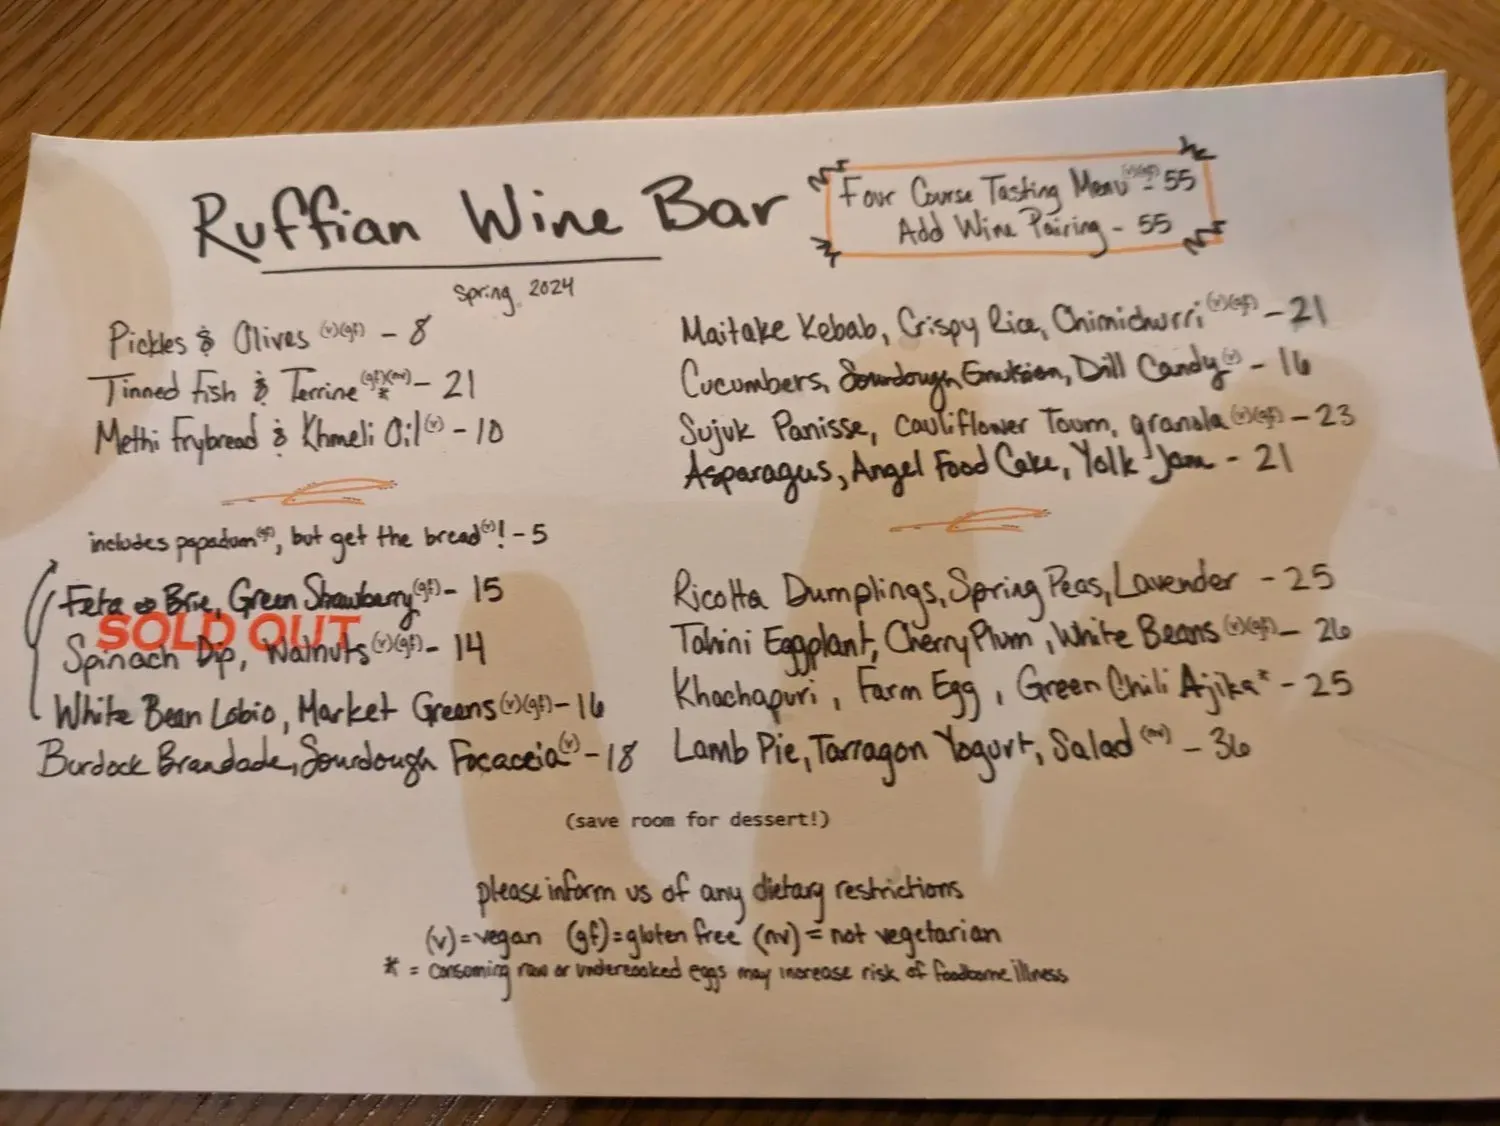 Ruffian Wine Bar
Spring 2024
Four Course Tasting Menu (v)(gf) - 55
Add Wine Pairing - 55
Pickles & Olives (v)(gf) - 8
Tinned Fish & Terrine (gf)(nv)* - 21
Methi Frybread & Khmeli Oil (v) - 10
includes papadum (gf), but get the bread (v)! - 5
Feta & Brie, Green Strawberry (gf) - 15
SOLD OUT
Spinach Dip, Walnuts (v)(gf) - 14
White Bean Lobio, Market Greens (v)(gf) - 16
Burdock Brandade, Sourdough Focaccia (v) - 18
Maitake Kebab, Crispy Rice, Chimichurri (v)(gf) - 21
Cucumbers, Sourdough Emulsion, Dill Candy (v) - 16
Sujuk Panisse, Cauliflower Toum, granola (v)(gf) - 23
Asparagus, Angel Food Cake, Yolk Jam - 21
Ricotta Dumplings, Spring Peas, Lavender - 25
Tahini Eggplant, Cherry Plum, White Beans (v)(gf) - 26
Khachapuri, Farm Egg, Green Chili Ajika* - 25
Lamb Pie, Tarragon Yogurt, Salad (nv) - 36
(save room for dessert!)
please inform us of any dietary restrictions
(v) = vegan (gf) = gluten free (nv) = not vegetarian
* = consoming raw or undercooked eggs may increase risk of foodborne illness